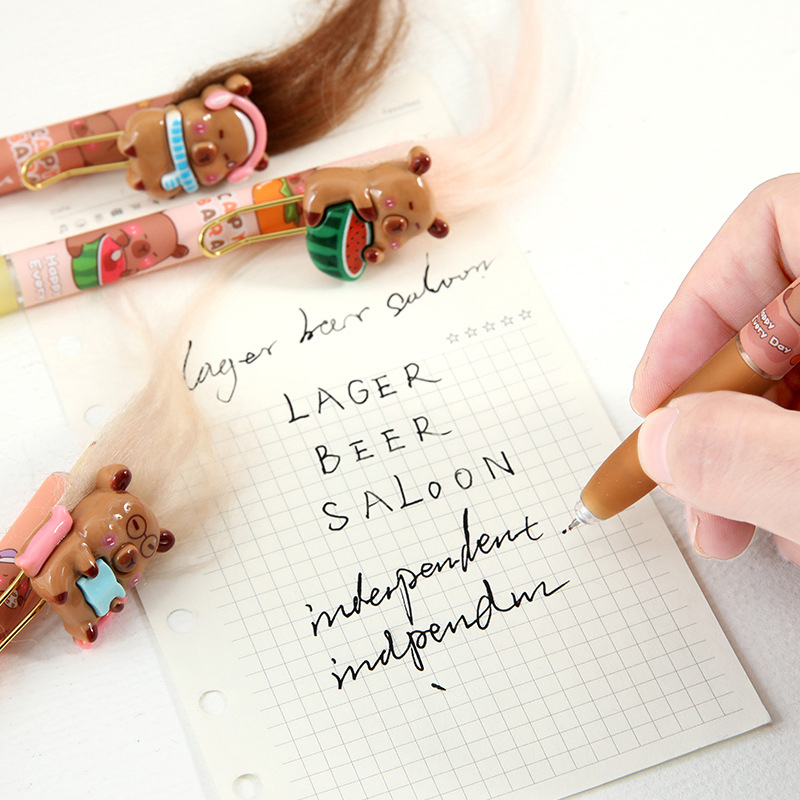 CAPY
BARA
CAPY
BARA
Happy
Every
lager beer saloon
☆☆☆☆☆
LAGER
BEER
SALOON
independent
indpendm
Happy
Every Day